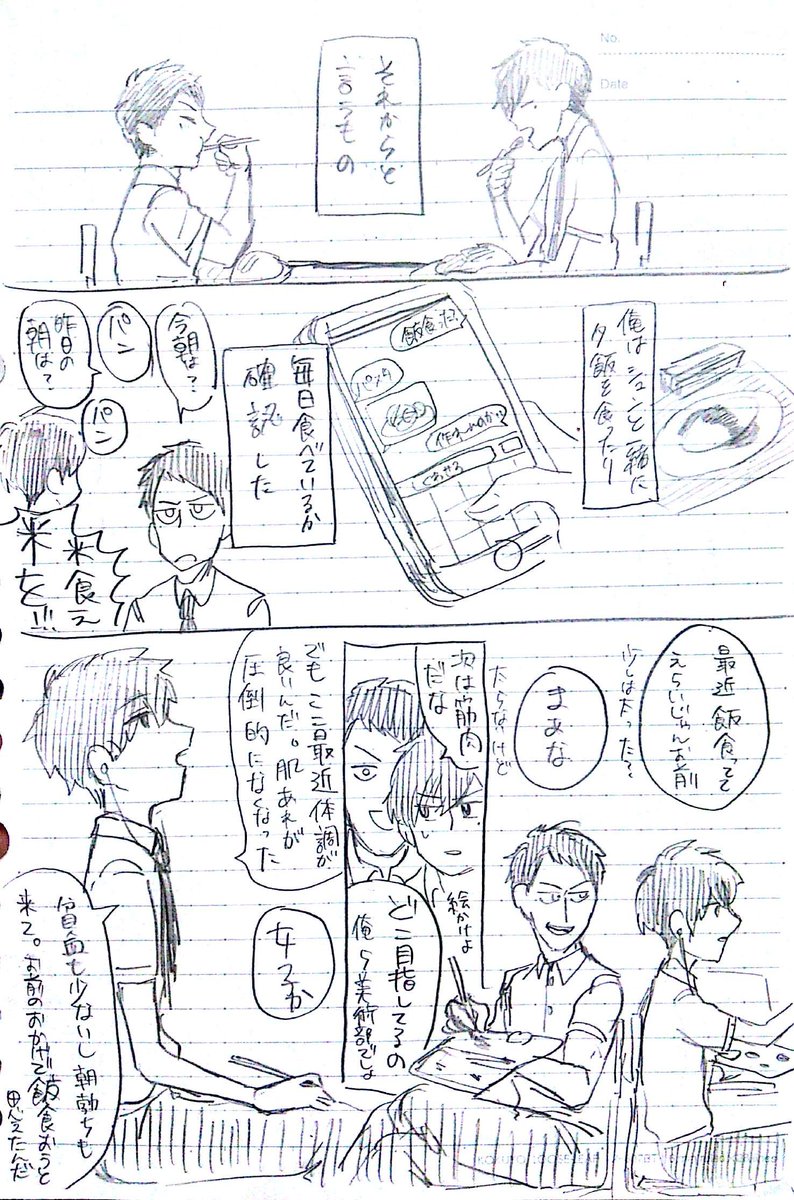 No.
Date
それからと
言うもの
俺はシュンと一緒に
夕飯を食ったり
飯食った?
パスタ
毎日食べているか
確認した
今朝は?
パン
昨日の
朝は?
パン
米食え
米を!!!
最近飯食ってて
えらいじゃんお前
少しは太った?
まぁな
太らないけど
次は筋肉
だな
どこ目指してるの
俺ら美術部でしょ
絵かけよ
でもここ最近体調が
良いんだ。肌あれが
圧倒的になくなった
女子か
貧血も少ないし朝勃ちも
来て。お前のおかげで飯食おうと
思えたんだ